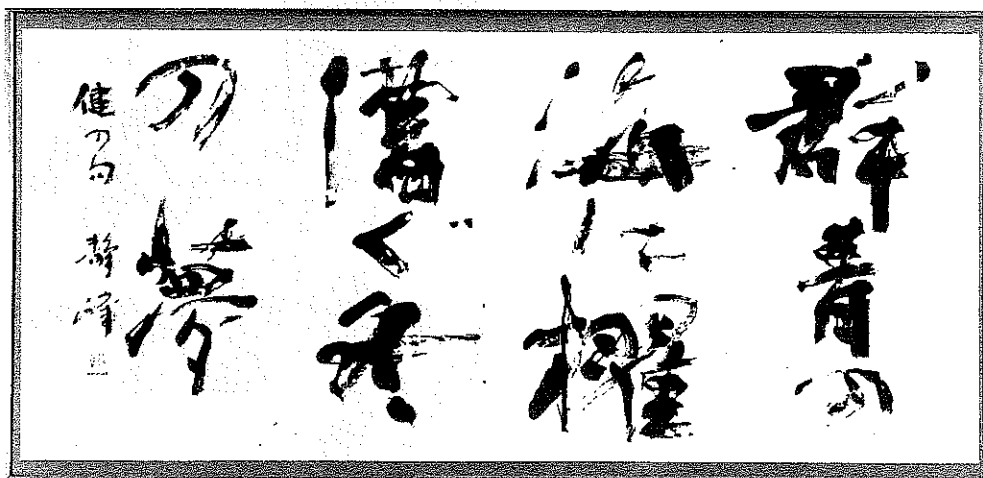 群青の
海に櫂
漕ぐ冬
の夢
健の句 静峰